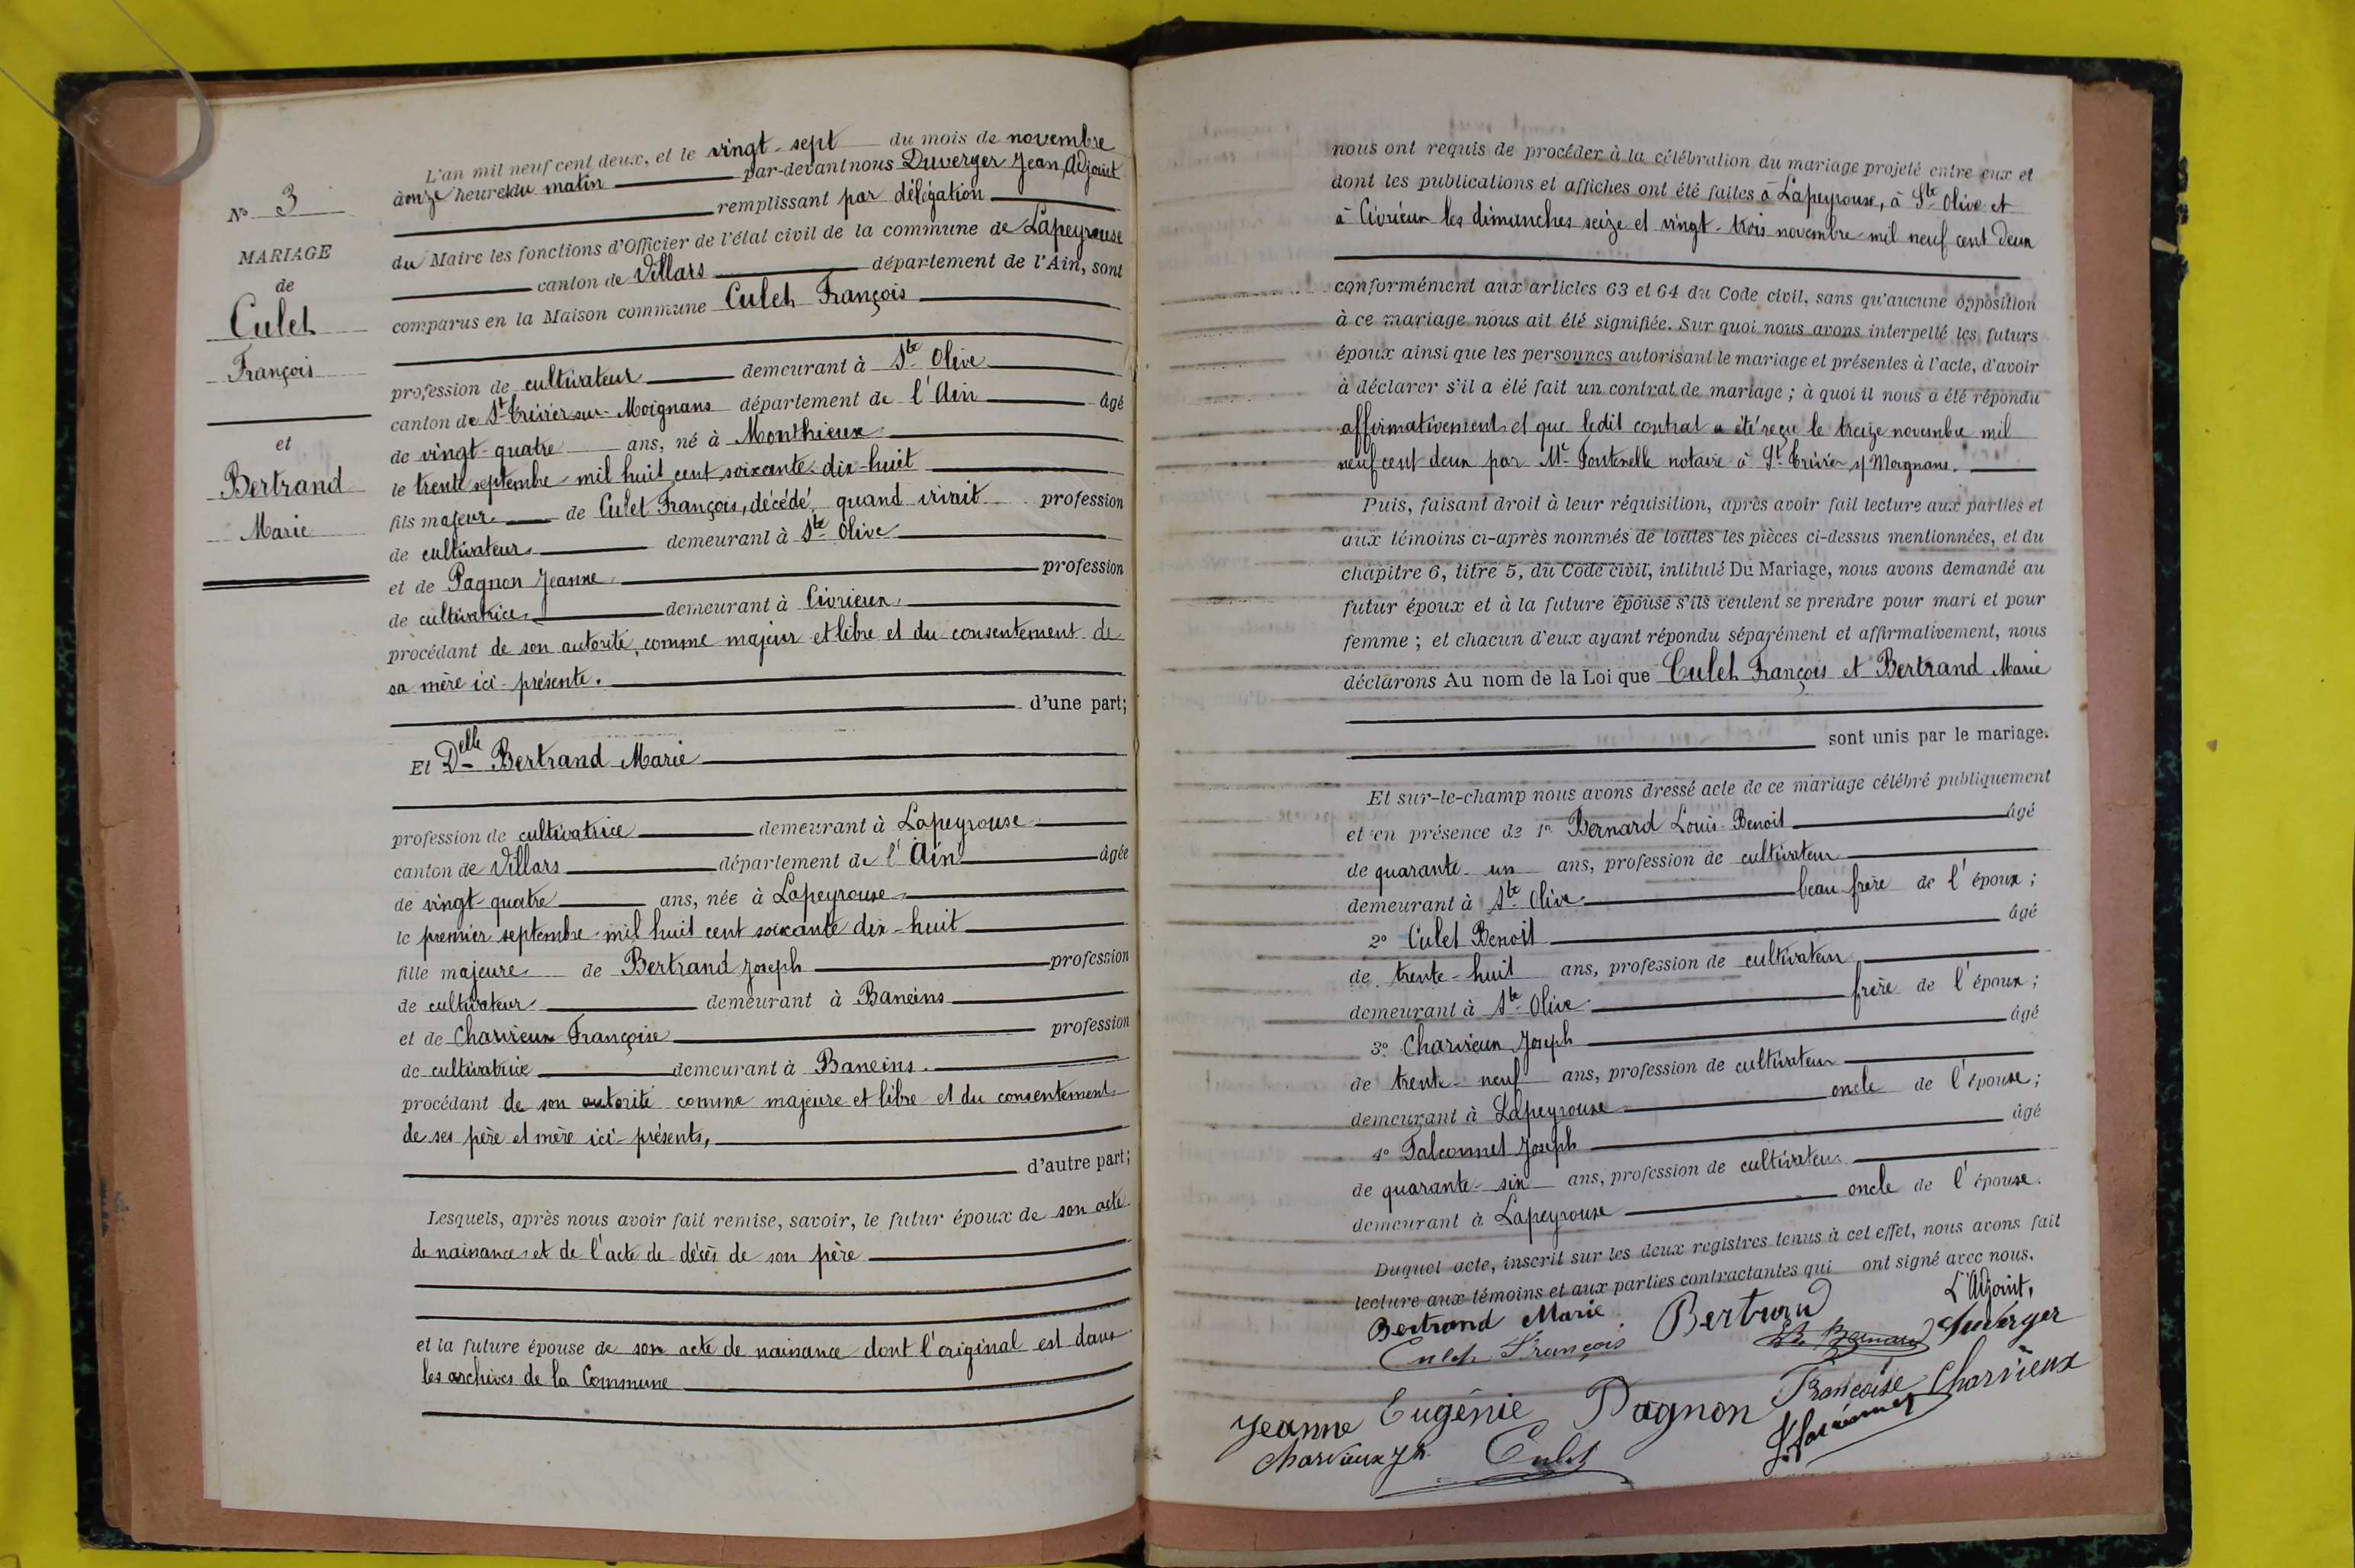 N° 3
MARIAGE
de
Culet
François
et
Bertrand
Marie
L'an mil neuf cent deux, et le vingt-sept du mois de novembre
à onze heures du matin par-devant nous Duverger Jean, Adjoint
remplissant par délégation
du Maire les fonctions d'Officier de l'état civil de la commune de Lapeyrouse
canton de Villars département de l'Ain, sont
comparus en la Maison commune Culet François
profession de cultivateur demeurant à Ste Olive
canton de St Trivier-sur-Moignans département de l'Ain âgé
de vingt-quatre ans, né à Monthieux
le trente septembre mil huit cent soixante-dix-huit
fils majeur de Culet François, décédé, quand vivait profession
de cultivateur demeurant à Ste Olive
et de Pagnon Jeanne profession
de cultivatrice demeurant à Civrieux
procédant de son autorité, comme majeur et libre et du consentement de
sa mère ici-présente.
d'une part;
Et Delle Bertrand Marie
profession de cultivatrice demeurant à Lapeyrouse
canton de Villars département de l'Ain âgée
de vingt-quatre ans, née à Lapeyrouse
le premier septembre mil huit cent soixante dix-huit
fille majeure de Bertrand Joseph profession
de cultivateur demeurant à Baneins
et de Charvieux Françoise profession
de cultivatrice demeurant à Baneins.
procédant de son autorité comme majeure et libre et du consentement
de ses père et mère ici-présents,
d'autre part;
Lesquels, après nous avoir fait remise, savoir, le futur époux de son acte
de naissance et de l'acte de décès de son père
et la future épouse de son acte de naissance dont l'original est dans
les archives de la Commune
nous ont requis de procéder à la célébration du mariage projeté entre eux et
dont les publications et affiches ont été faites à Lapeyrouse, à Ste Olive et
à Civrieux les dimanches seize et vingt-trois novembre mil neuf cent deux
conformément aux articles 63 et 64 du Code civil, sans qu'aucune opposition
à ce mariage nous ait été signifiée. Sur quoi nous avons interpellé les futurs
époux ainsi que les personnes autorisant le mariage et présentes à l'acte, d'avoir
à déclarer s'il a été fait un contrat de mariage; à quoi il nous a été répondu
affirmativement et que ledit contrat a été reçu le treize novembre mil
neuf cent deux par Me Fontenelle notaire à St Trivier s/ Moignans.
Puis, faisant droit à leur réquisition, après avoir fait lecture aux parties et
aux témoins ci-après nommés de toutes les pièces ci-dessus mentionnées, et du
chapitre 6, titre 5, du Code civil, intitulé Du Mariage, nous avons demandé au
futur époux et à la future épouse s'ils veulent se prendre pour mari et pour
femme; et chacun d'eux ayant répondu séparément et affirmativement, nous
déclarons Au nom de la Loi que Culet François et Bertrand Marie
sont unis par le mariage.
Et sur-le-champ nous avons dressé acte de ce mariage célébré publiquement
et en présence de 1° Bernard Louis-Benoit âgé
de quarante-un ans, profession de cultivateur
demeurant à Ste Olive beau frère de l'époux;
2° Culet Benoit âgé
de trente-huit ans, profession de cultivateur
demeurant à Ste Olive frère de l'époux;
3° Charvieux Joseph âgé
de trente-neuf ans, profession de cultivateur
demeurant à Lapeyrouse oncle de l'épouse;
4° Falconnet Joseph âgé
de quarante-six ans, profession de cultivateur
demeurant à Lapeyrouse oncle de l'épouse.
Duquel acte, inscrit sur les deux registres tenus à cet effet, nous avons fait
lecture aux témoins et aux parties contractantes qui ont signé avec nous.
L'Adjoint,
Bertrand Marie Bertrand
Culet François Bernard Duverger
Jeanne Eugénie Pagnon Françoise Charvieux
Charvieux Jh Culet